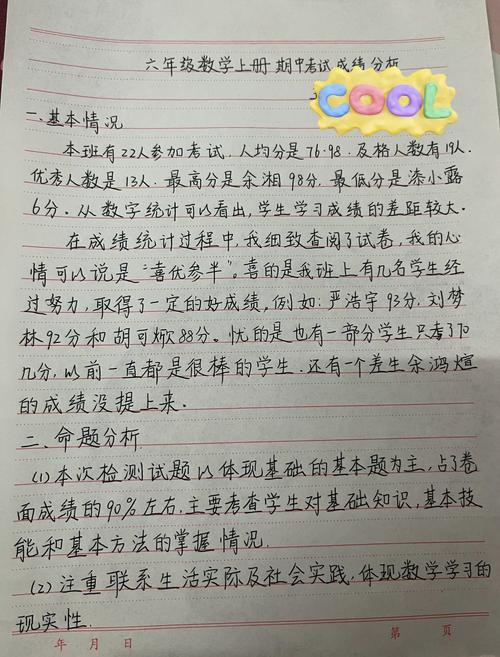 六年级数学上册 期中考试成绩分析
COOL
一.基本情况
本班有22人参加考试.人均分是76.98.及格人数有19人.
优秀人数是13人.最高分是余湘98分.最低分是漆小露
6分.从数字统计可以看出,学生学习成绩的差距较大.
在成绩统计过程中,我细致查阅了试卷,我的心
情可以说是"喜优参半"。喜的是我班上有几名学生经
过努力,取得了一定的好成绩,例如:严浩宇93分.刘梦
林92分和胡可欣88分。忧的是也有一部分学生只考了70
几分.以前一直都是很棒的学生.还有一个差生余鸿煊
的成绩没提上来.
二.命题分析
(1)本次检测试题以体现基础的基本题为主,占了卷
面成绩的90%左右.主要考查学生对基础知识,基本技
能和基本方法的掌握情况.
(2)注重联系生活实际及社会实践.体现数学学习的
现实性.
年 月 日 第 页